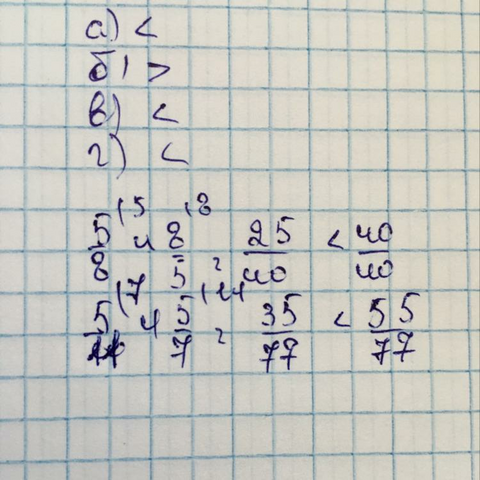 а) <
б) >
в) <
г) <
5/8 (5 и 8/5 (8 = 25/40 < 40/40
5/11 (7 и 5/7 (11 = 35/77 < 55/77